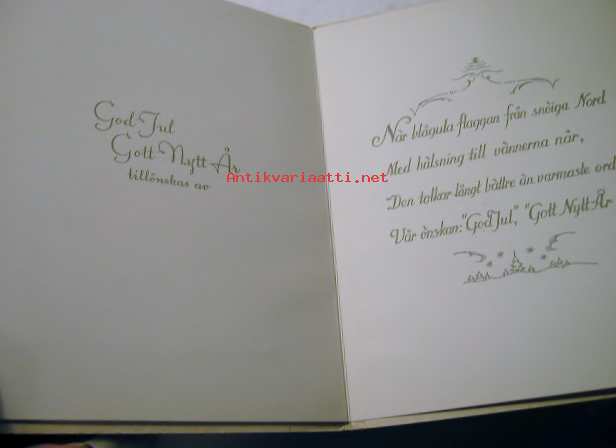 God Jul
Gott Nytt År
tillönskas av
Antikvariaatti.net
När blågula flaggan från snöiga Nord
Med hälsning till vännerna når,
Den tolkar långt bättre än varmaste ord
Vår önskan: "God Jul," "Gott Nytt År